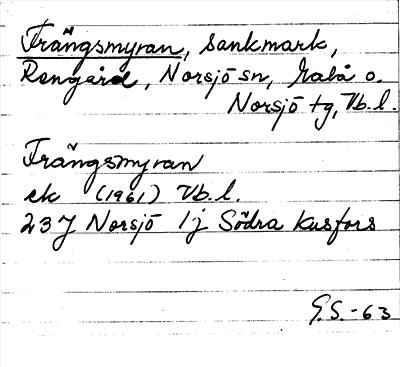 Trångsmyran, Sankmark,
Rengård, Norsjö sn, Malå o.
Norsjö tg, Vb. l.
Trångsmyran
ek (1961) Vb. l.
23J Norsjö 1j Södra Kusfors
G.S. -63